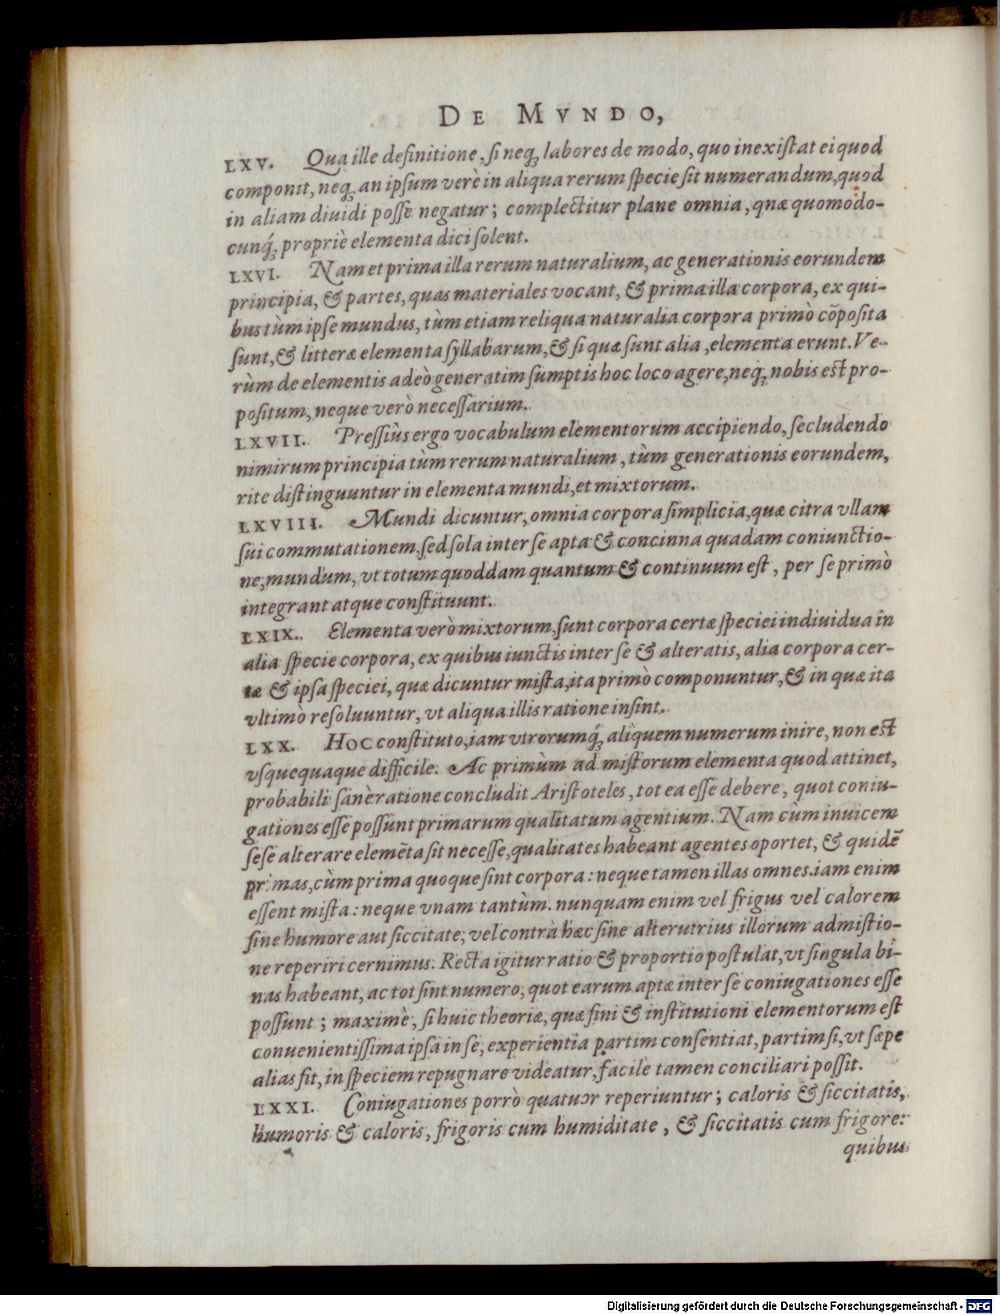 DE MVNDO,
LXV. Qua ille definitione, si neq; labores de modo, quo inexistat ei quod
componit, neq; an ipsum verè in aliqua rerum specie sit numerandum, quod
in aliam diuidi posse negatur; complectitur plane omnia, quæ quomodo-
cunq́; propriè elementa dici solent.
LXVI. Nam et prima illa rerum naturalium, ac generationis eorundem
principia, & partes, quas materiales vocant, & prima illa corpora, ex qui-
bus tùm ipse mundus, tùm etiam reliqua naturalia corpora primò cõposita
sunt, & litteræ elementa syllabarum, & si quæ sunt alia, elementa erunt. Ve-
rùm de elementis adeò generatim sumptis hoc loco agere, neq; nobis est pro-
positum, neque verò necessarium.
LXVII. Pressiùs ergo vocabulum elementorum accipiendo, secludendo
nimirum principia tùm rerum naturalium, tùm generationis eorundem,
rite distinguuntur in elementa mundi, et mixtorum.
LXVIII. Mundi dicuntur, omnia corpora simplicia, quæ citra vllam
sui commutationem, sed sola inter se apta & concinna quadam coniunctio-
ne, mundum, vt totum quoddam quantum & continuum est, per se primò
integrant atque constituunt.
LXIX. Elementa verò mixtorum, sunt corpora certæ speciei indiuidua in
alia specie corpora, ex quibus iunctis inter se & alteratis, alia corpora cer-
tæ & ipsa speciei, quæ dicuntur mista, ita primò componuntur, & in quæ ita
vltimò resoluuntur, vt aliqua illis ratione insint.
LXX. HOC constituto, iam vtrorumq́; aliquem numerum inire, non est
vsquequaque difficile. Ac primùm ad mistorum elementa quod attinet,
probabili sanè ratione concludit Aristoteles, tot ea esse debere, quot coniu-
gationes esse possunt primarum qualitatum agentium. Nam cùm inuicem
sese alterare elemẽta sit necesse, qualitates habeant agentes oportet, & quidẽ
primas, cùm prima quoque sint corpora: neque tamen illas omnes. iam enim
essent mista: neque vnam tantùm. nunquam enim vel frigus vel calorem
sine humore aut siccitate, vel contrà hæc sine alterutrius illorum admistio-
ne reperiri cernimus. Recta igitur ratio & proportio postulat, vt singula bi-
nas habeant, ac tot sint numero, quot earum aptæ inter se coniugationes esse
possunt; maximè, si huic theoriæ, quæ fini & institutioni elementorum est
conuenientissima ipsa in se, experientia partim consentiat, partim si, vt sæpe
alias fit, in speciem repugnare videatur, facile tamen conciliari possit.
LXXI. Coniugationes porrò quatuor reperiuntur; caloris & siccitatis,
humoris & caloris, frigoris cum humiditate, & siccitatis cum frigore:
quibus
Digitalisierung gefördert durch die Deutsche Forschungsgemeinschaft - DFG